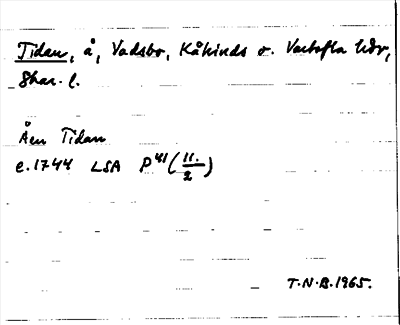 Tidan, å, Vadsbo, Kåkinds o. Vartofta hdr,
Skar. l.
Åen Tidan
c. 1744 LSA P41 (11./2)
T.N.B. 1965.